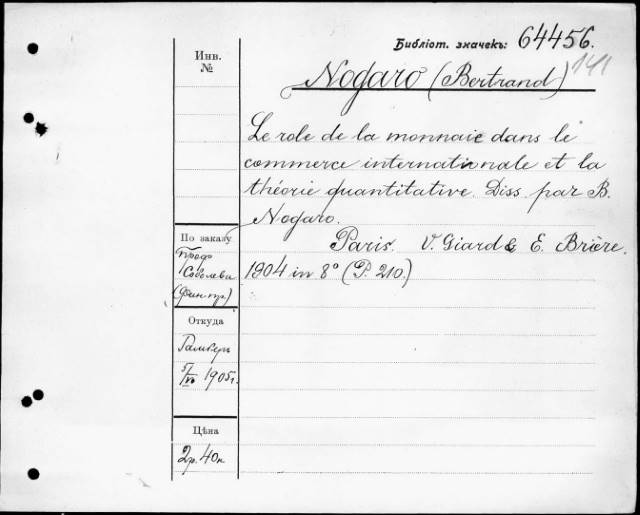 Библіот. значекъ: 64456.
141
Инв.
№
Nogaro (Bertrand)
Le role de la monnaie dans le
commerce internationale et la
théorie quantitative. Diss. par B.
Nogaro.
Paris. V. Giard & E. Brière.
1904 in 8° (P. 210.)
По заказу
проф.
Соболева
(Фин. пр.)
Откуда
1905 г.
Цѣна
2 р. 40 к